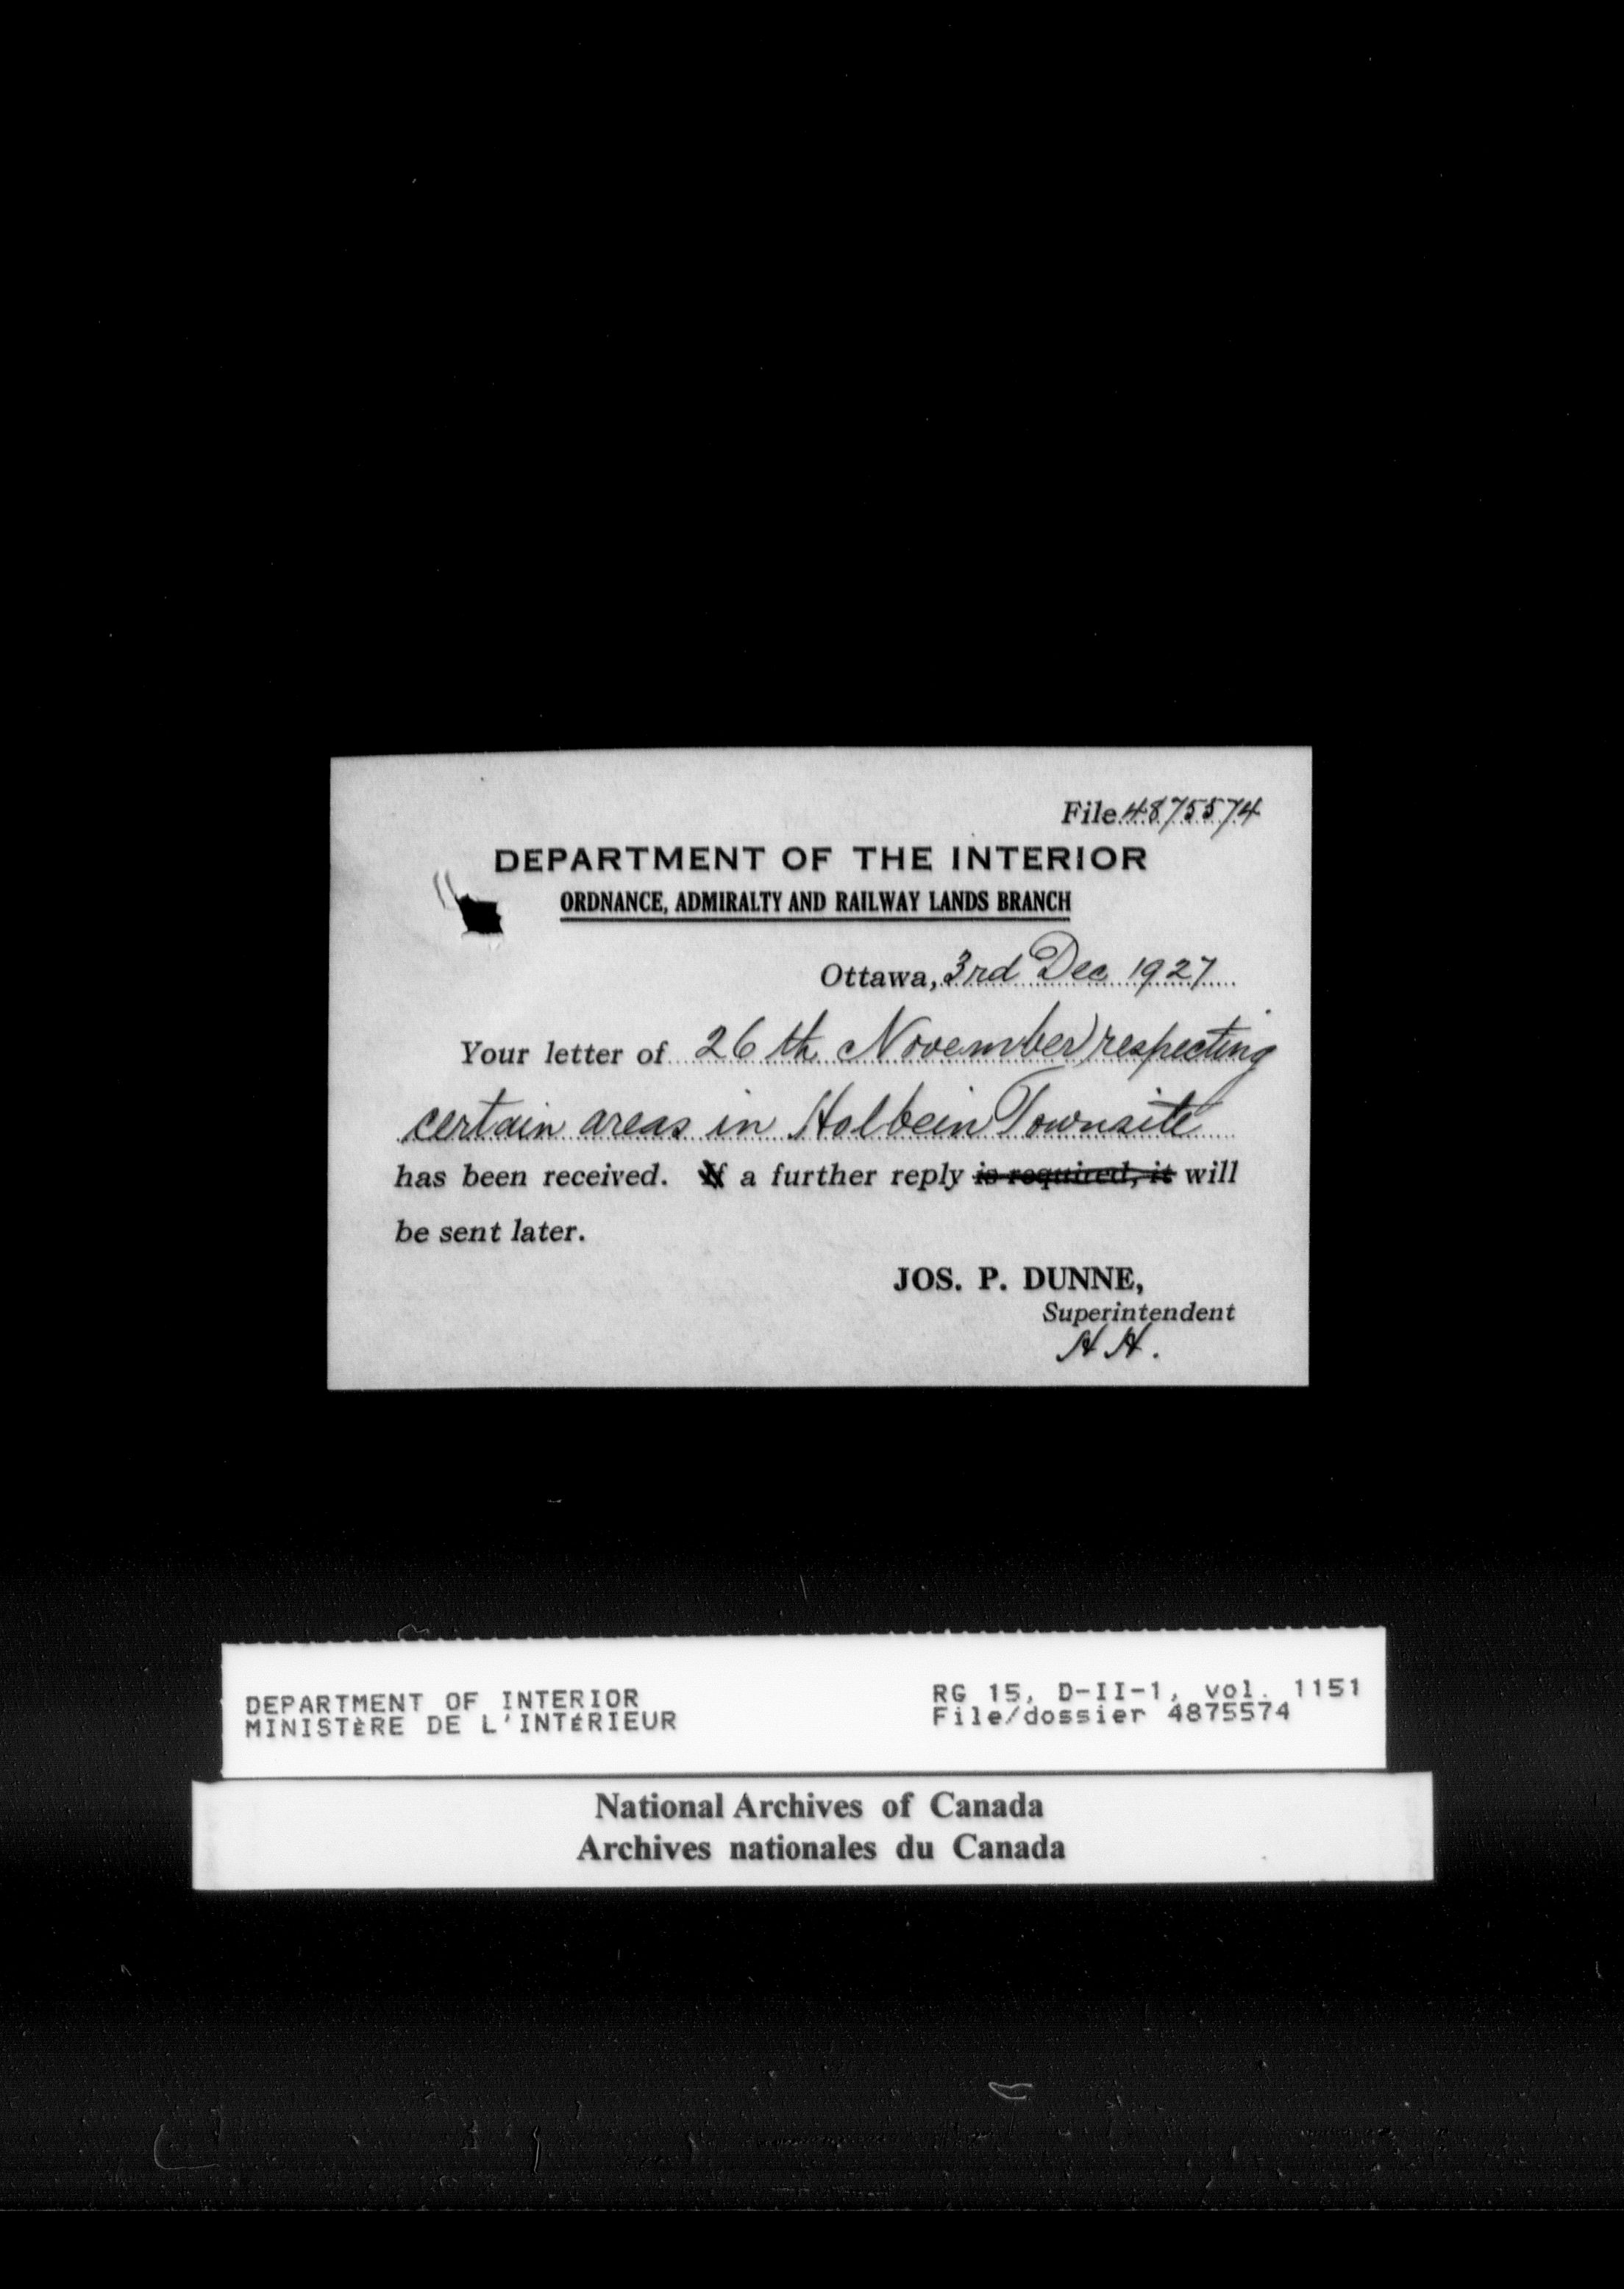 File 4875574
DEPARTMENT OF THE INTERIOR
ORDNANCE, ADMIRALTY AND RAILWAY LANDS BRANCH
Ottawa, 3rd Dec 1927
Your letter of 26th November respecting
certain areas in Holbein Townsite
has been received. If a further reply is required, it will
be sent later.
JOS. P. DUNNE,
Superintendent
H H.
DEPARTMENT OF INTERIOR
MINISTÈRE DE L'INTÉRIEUR
RG 15, D-II-1, vol. 1151
File/dossier 4875574
National Archives of Canada
Archives nationales du Canada